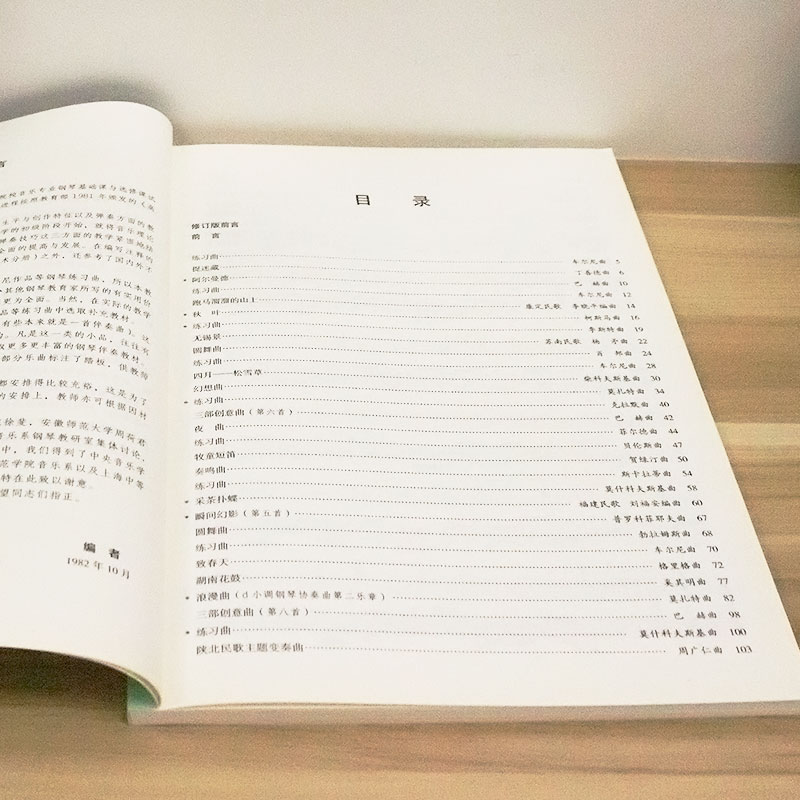 言
院校音乐专业钢琴基础课与选修课试
进程按照教育部1981年颁发的《高
生平与创作特征以及弹奏方面的整
学的初级阶段开始，就将音乐理论
弹奏技巧这三方面的教学紧密地结
全面的提高与发展。在编写注释的
术分册）之外，还参考了国内外
尼作品等钢琴练习曲，所以本教
其他钢琴教育家所写的有实用价
更为全面。当然，在实际的教学
品等练习曲中选取补充教材。
有些本来就是一首伴奏曲）。这
的。凡是这一类的小品，往往有
取更多更丰富的钢琴伴奏教材，
部分乐曲标注了踏板，供教师
都安排得比较充裕，这是为了
的安排上，教师亦可根据因材
徐斐，安徽师范大学周荷君
音乐系钢琴教研室集体讨论，
中，我们得到了中央音乐学
范学院音乐系以及上海中等
特在此致以谢意。
望同志们指正。
编 者
1982年10月
目 录
修订版前言
前 言
练习曲 车尔尼曲 5
捉迷藏 丁善德曲 6
* 阿尔曼德 巴 赫曲 10
练习曲 车尔尼曲 12
跑马溜溜的山上 康定民歌 李晓平编曲 14
* 秋 叶 柯斯马曲 16
* 练习曲 李斯特曲 19
无锡景 苏南民歌 杨 矛曲 22
圆舞曲 肖 邦曲 24
练习曲 车尔尼曲 28
四月——松雪草 柴科夫斯基曲 30
幻想曲 莫扎特曲 34
* 练习曲 克拉默曲 40
三部创意曲（第六首） 巴 赫曲 42
夜 曲 菲尔德曲 44
练习曲 贝伦斯曲 47
牧童短笛 贺绿汀曲 50
奏鸣曲 斯卡拉蒂曲 54
练习曲 莫什科夫斯基曲 58
* 采茶扑蝶 福建民歌 刘福安编曲 60
* 瞬间幻影（第五首） 普罗科菲耶夫曲 67
圆舞曲 勃拉姆斯曲 68
练习曲 车尔尼曲 70
致春天 格里格曲 72
湖南花鼓 来其明曲 77
* 浪漫曲（d小调钢琴协奏曲第二乐章） 莫扎特曲 82
三部创意曲（第八首） 巴 赫曲 98
* 练习曲 莫什科夫斯基曲 100
陕北民歌主题变奏曲 周广仁曲 103